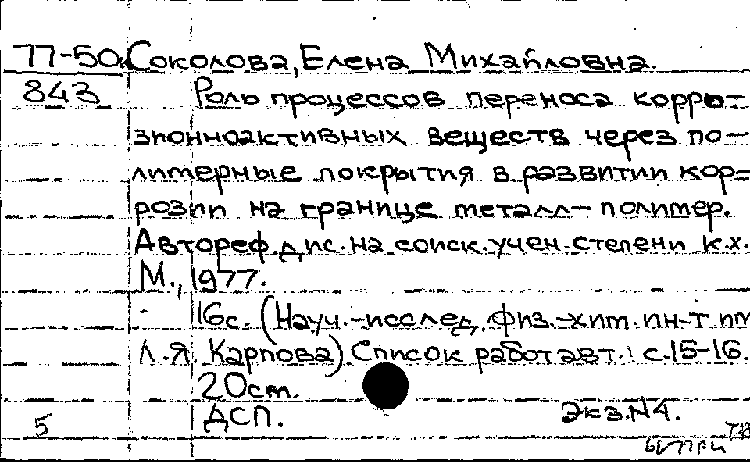 77-50 Соколова, Елена Михайловна.
843 Роль процессов переноса корро-
зионноактивных веществ через по-
лимерные покрытия в развитии кор=
розии на границе металл-полимер.
Автореф. дис. на соиск. учен. степени к.х.
М., 1977.
16с. (Науч.-исслед. физ.-хим. ин-т им
Л.Я. Карпова) Список работ авт.: с.15-16.
20см.
ДСП. Экз.№4.
5